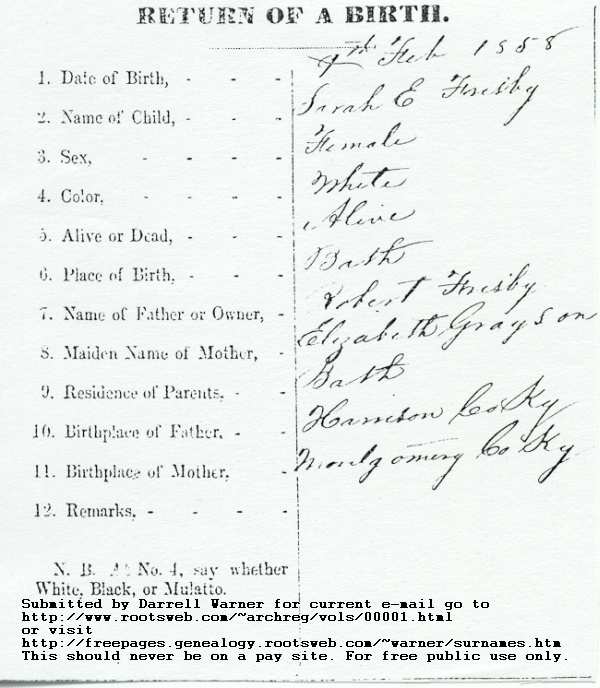 RETURN OF A BIRTH.
1. Date of Birth, - - - 4th Feb 1858
2. Name of Child, - - - Sarah E Frisby
3. Sex, - - - - Female
4. Color, - - - - White
5. Alive or Dead, - - - Alive
6. Place of Birth, - - - Bath
7. Name of Father or Owner, - Robert Frisby
8. Maiden Name of Mother, - Elizabeth Grayson
9. Residence of Parents, - - Bath
10. Birthplace of Father, - - Harrison Co Ky
11. Birthplace of Mother, - Montgomery Co Ky
12. Remarks, - - - -
N. B. At No. 4, say whether
White, Black, or Mulatto.
Submitted by Darrell Warner for current e-mail go to
http://www.rootsweb.com/~archreg/vols/00001.html
or visit
http://freepages.genealogy.rootsweb.com/~warner/surnames.htm
This should never be on a pay site. For free public use only.